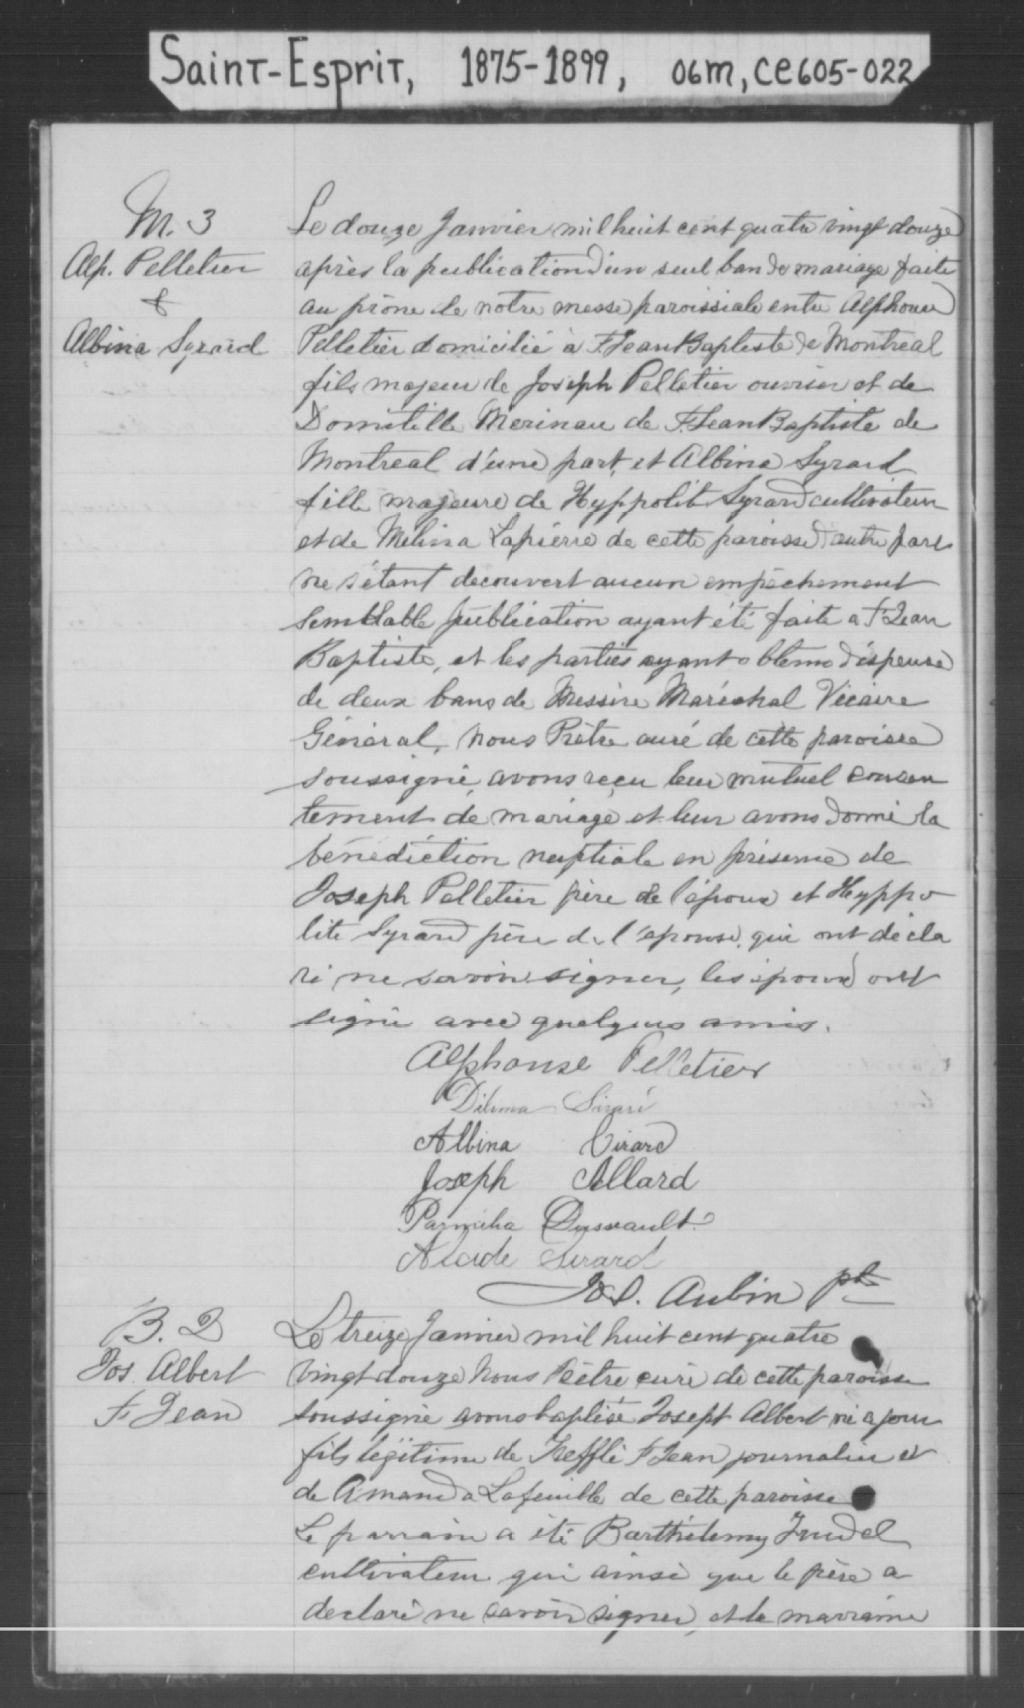 Saint-Esprit, 1875-1899, 06m, ce605-022
M. 3
Alp. Pelletier
&
Albina Syrard
Le douze Janvier mil huit cent quatre vingt douze
après la publication d'un seul ban de mariage faite
au prône de notre messe paroissiale entre Alphonse
Pelletier domicilié à St Jean Baptiste de Montreal
fils majeur de Joseph Pelletier ouvrier et de
Domitille Merinau de St Jean Baptiste de
Montreal d'une part, et Albina Syrard
fille majeure de Hyppolite Syrard cultivateur
et de Melina Lapierre de cette paroisse d'autre part
ne s'étant decouvert aucun empêchement
semblable publication ayant été faite a St Jean
Baptiste, et les parties ayant obtenu dispense
de deux bans de Messire Maréchal Vicaire
Général, Nous Prêtre curé de cette paroisse
soussigné, avons reçu leur mutuel consen
tement de mariage et leur avons donné la
bénédiction nuptiale en présence de
Joseph Pelletier père de l'époux et Hyppo
lite Syrard père de l'épouse, qui ont décla
ré ne savoir signer, les époux ont
signé avec quelques amis.
Alphonse Pelletier
Sirard
Albina Cirard
Joseph Allard
Parmélia Dussault
Alcide Sirard
Jos. Aubin ptre
B. 2
Jos. Albert
St Jean
Le treize Janvier mil huit cent quatre
vingt douze Nous Prêtre curé de cette paroisse
soussigné avons baptisé Joseph Albert né ce jour
fils légitime de Trefflé St Jean journalier et
de Amanda Lafeuille de cette paroisse
Le parrain a été Barthélemy Trudel
cultivateur qui ainsi que le père a
declaré ne savoir signer, et la marraine